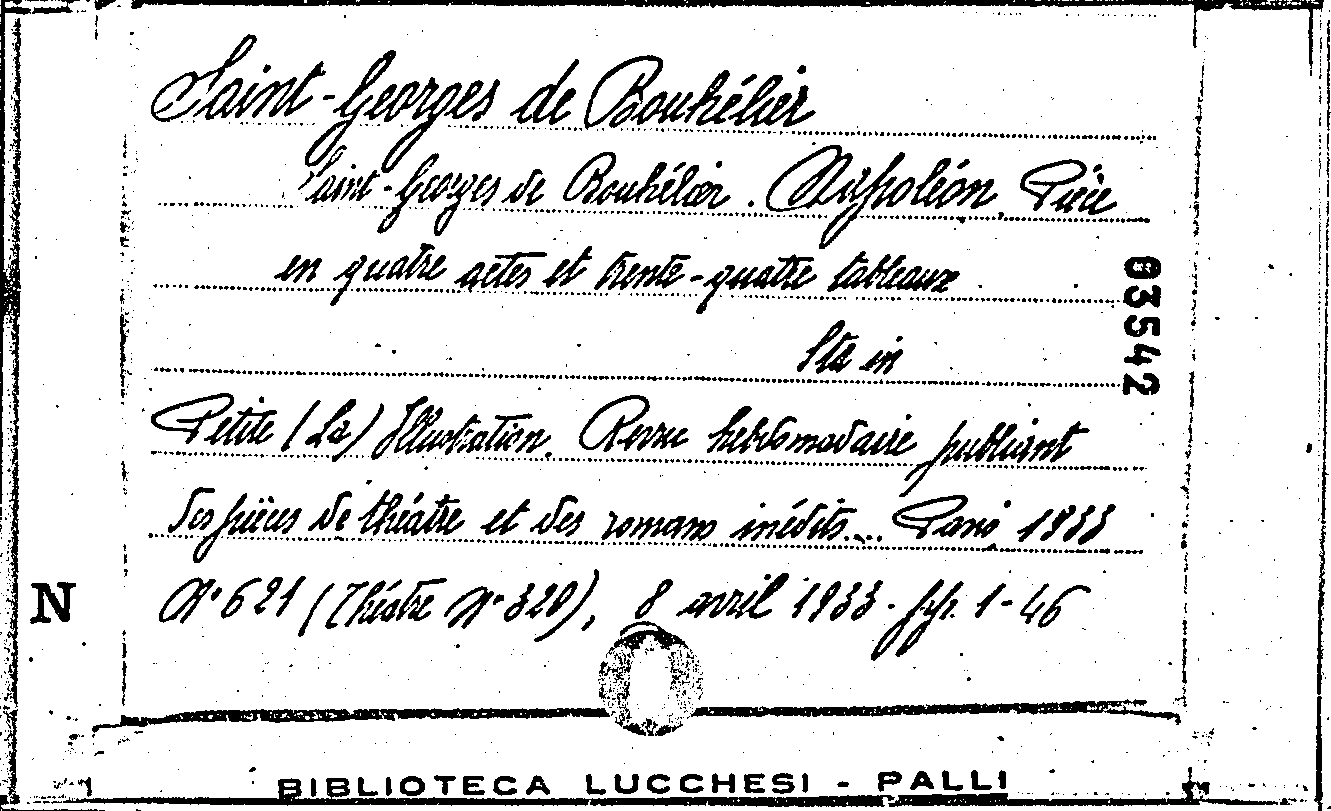 Saint-Georges de Bouhélier
Saint-Georges de Bouhélier. Napoléon. Pièce
en quatre actes et trente-quatre tableaux
03542
Sta in
Petite (La) Illustration. Revue hebdomadaire publiant
des pièces de théatre et des romans inédits... Paris, 1933
N
N° 621 (Théatre N° 320), 8 avril 1933 - pp. 1-46
BIBLIOTECA LUCCHESI - PALLI